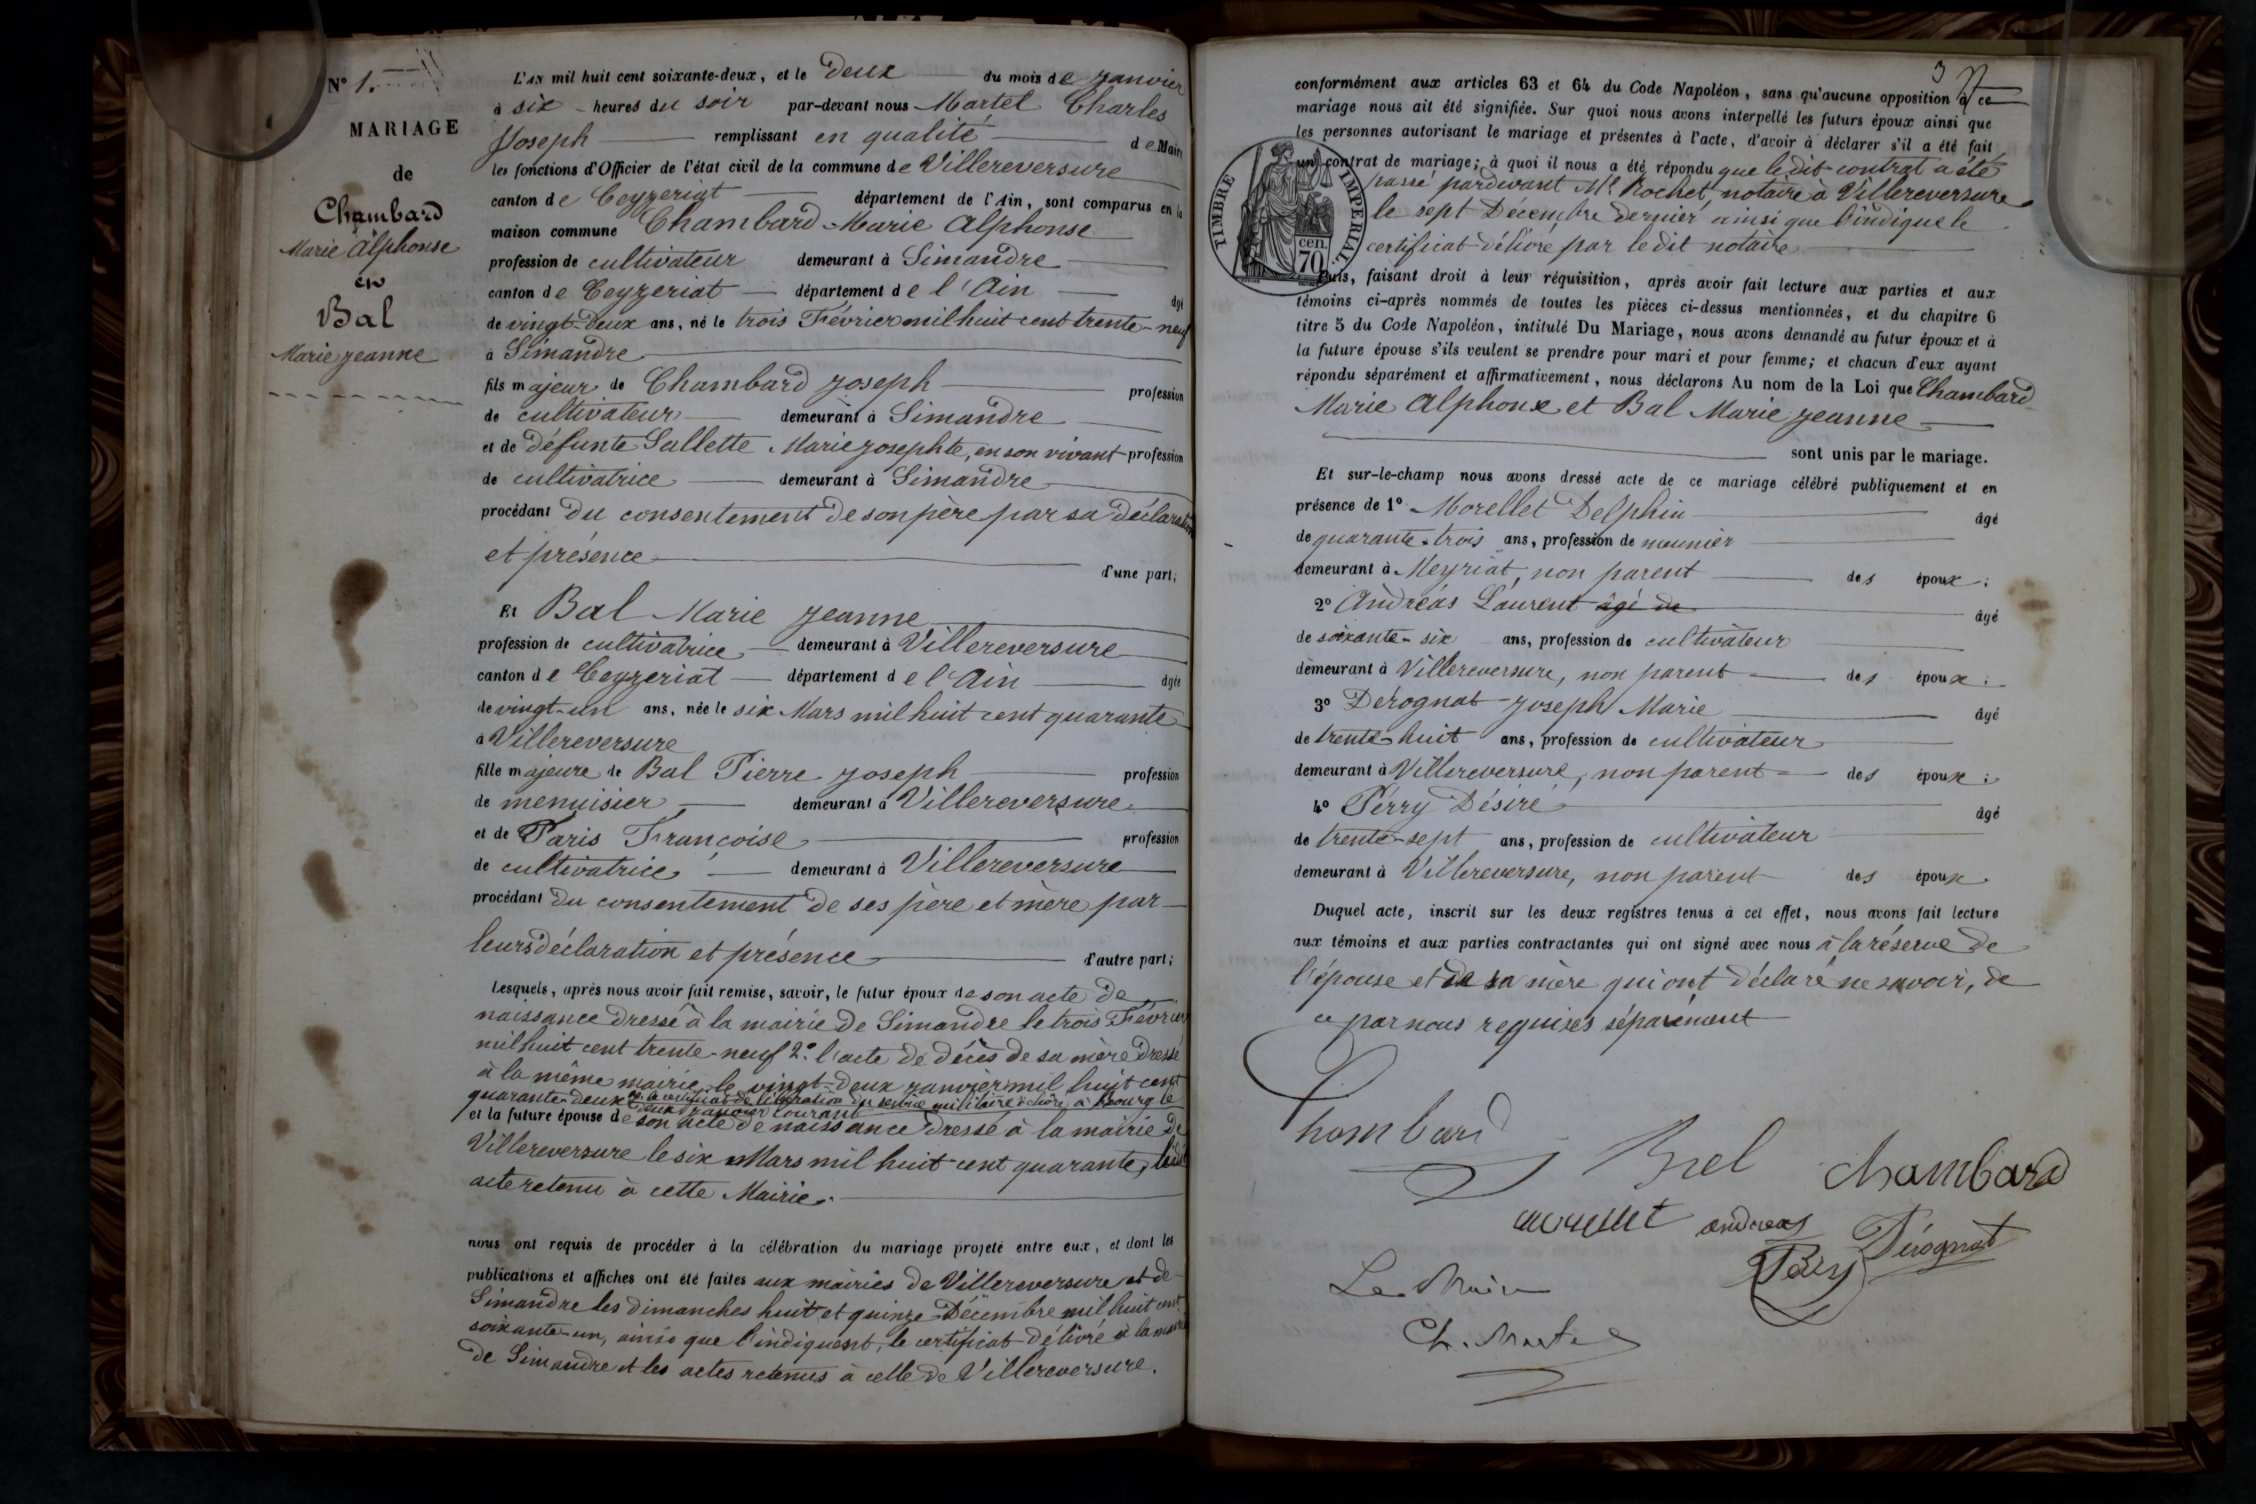 N° 1.
MARIAGE
de
Chambard
Marie Alphonse
et
Bal
Marie Jeanne
L'AN mil huit cent soixante-deux, et le deux du mois de Janvier
à six heures du soir par-devant nous Martel Charles
Joseph remplissant en qualité de Maire
les fonctions d'Officier de l'état civil de la commune de Villereversure
canton de Ceyzeriat département de l'Ain, sont comparus en la
maison commune Chambard Marie Alphonse
profession de cultivateur demeurant à Simandre
canton de Ceyzeriat département de l'Ain âgé
de vingt-deux ans, né le trois Février mil huit cent trente-neuf
à Simandre
fils majeur de Chambard Joseph profession
de cultivateur demeurant à Simandre
et de défunte Sallette Marie Josephte, en son vivant profession
de cultivatrice demeurant à Simandre
procédant du consentement de son père par sa déclaration
et présence d'une part;
Et Bal Marie Jeanne
profession de cultivatrice demeurant à Villereversure
canton de Ceyzeriat département de l'Ain âgée
de vingt-un ans, née le six Mars mil huit cent quarante
à Villereversure
fille majeure de Bal Pierre Joseph profession
de menuisier demeurant à Villereversure
et de Paris Françoise profession
de cultivatrice demeurant à Villereversure
procédant du consentement de ses père et mère par
leurs déclaration et présence d'autre part;
Lesquels, après nous avoir fait remise, savoir, le futur époux de son acte de
naissance dressé à la mairie de Simandre le trois Février
mil huit cent trente-neuf 2° l'acte de décès de sa mère dressé
à la même mairie le vingt-deux janvier mil huit cent
quarante-deux 3° le certificat de libération du service militaire délivré à Bourg le
deux Janvier courant
et la future épouse de son acte de naissance dressé à la mairie de
Villereversure le six Mars mil huit cent quarante, ledit
acte retenu à cette Mairie.
nous ont requis de procéder à la célébration du mariage projeté entre eux, et dont les
publications et affiches ont été faites aux mairies de Villereversure et de
Simandre les dimanches huit et quinze Décembre mil huit cent
soixante-un, ainsi que l'indiquent, le certificat délivré à la mairie
de Simandre et les actes retenus à celle de Villereversure.
3
conformément aux articles 63 et 64 du Code Napoléon, sans qu'aucune opposition à ce
mariage nous ait été signifiée. Sur quoi nous avons interpellé les futurs époux ainsi que
les personnes autorisant le mariage et présentes à l'acte, d'avoir à déclarer s'il a été fait
un contrat de mariage; à quoi il nous a été répondu que le dit contrat a été
passé pardevant Me Rochet, notaire à Villereversure
le sept Décembre dernier ainsi que l'indique le
certificat délivré par le dit notaire
TIMBRE IMPERIAL
70 cen.
Puis, faisant droit à leur réquisition, après avoir fait lecture aux parties et aux
témoins ci-après nommés de toutes les pièces ci-dessus mentionnées, et du chapitre 6
titre 5 du Code Napoléon, intitulé Du Mariage, nous avons demandé au futur époux et à
la future épouse s'ils veulent se prendre pour mari et pour femme; et chacun d'eux ayant
répondu séparément et affirmativement, nous déclarons Au nom de la Loi que Chambard
Marie Alphonse et Bal Marie Jeanne
sont unis par le mariage.
Et sur-le-champ nous avons dressé acte de ce mariage célébré publiquement et en
présence de 1° Morellet Delphin âgé
de quarante-trois ans, profession de meunier
demeurant à Meyriat, non parent des époux;
2° Andréas Laurent âgé de âgé
de soixante-six ans, profession de cultivateur
demeurant à Villereversure, non parent des époux;
3° Dérognat Joseph Marie âgé
de trente-huit ans, profession de cultivateur
demeurant à Villereversure, non parent des époux;
4° Perry Désiré âgé
de trente-sept ans, profession de cultivateur
demeurant à Villereversure, non parent des époux.
Duquel acte, inscrit sur les deux registres tenus à cet effet, nous avons fait lecture
aux témoins et aux parties contractantes qui ont signé avec nous à la réserve de
l'épouse et de sa mère qui ont déclaré ne savoir, de
ce par nous requises séparément
Chambard
Bal
Chambard
Morellet
andreas
Dérognat
Perry
Le Maire
Ch. Martel